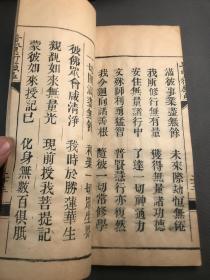 滿彼事業盡無餘　未來際劫恒無倦
我所修行無有量　獲得無量諸功德
安住無量諸行中　了達一切神通力
文殊師利勇猛智　普賢慧行亦復然
我今迴向諸善根　隨彼一切常修學
一切圓滿盡無餘　利樂一切眾生界
彼佛眾會咸清淨　我時於勝蓮華生
親覩如來無量光　現前授我菩提記
蒙彼如來授記已　化身無數百俱胝